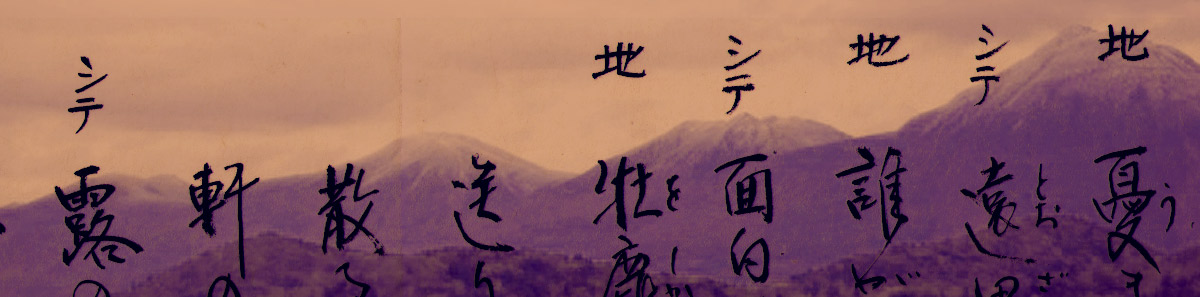 地 憂き
シテ 遠里
地 誰が
シテ 面白
地 牡鹿
送り
散る
軒の
シテ 露の